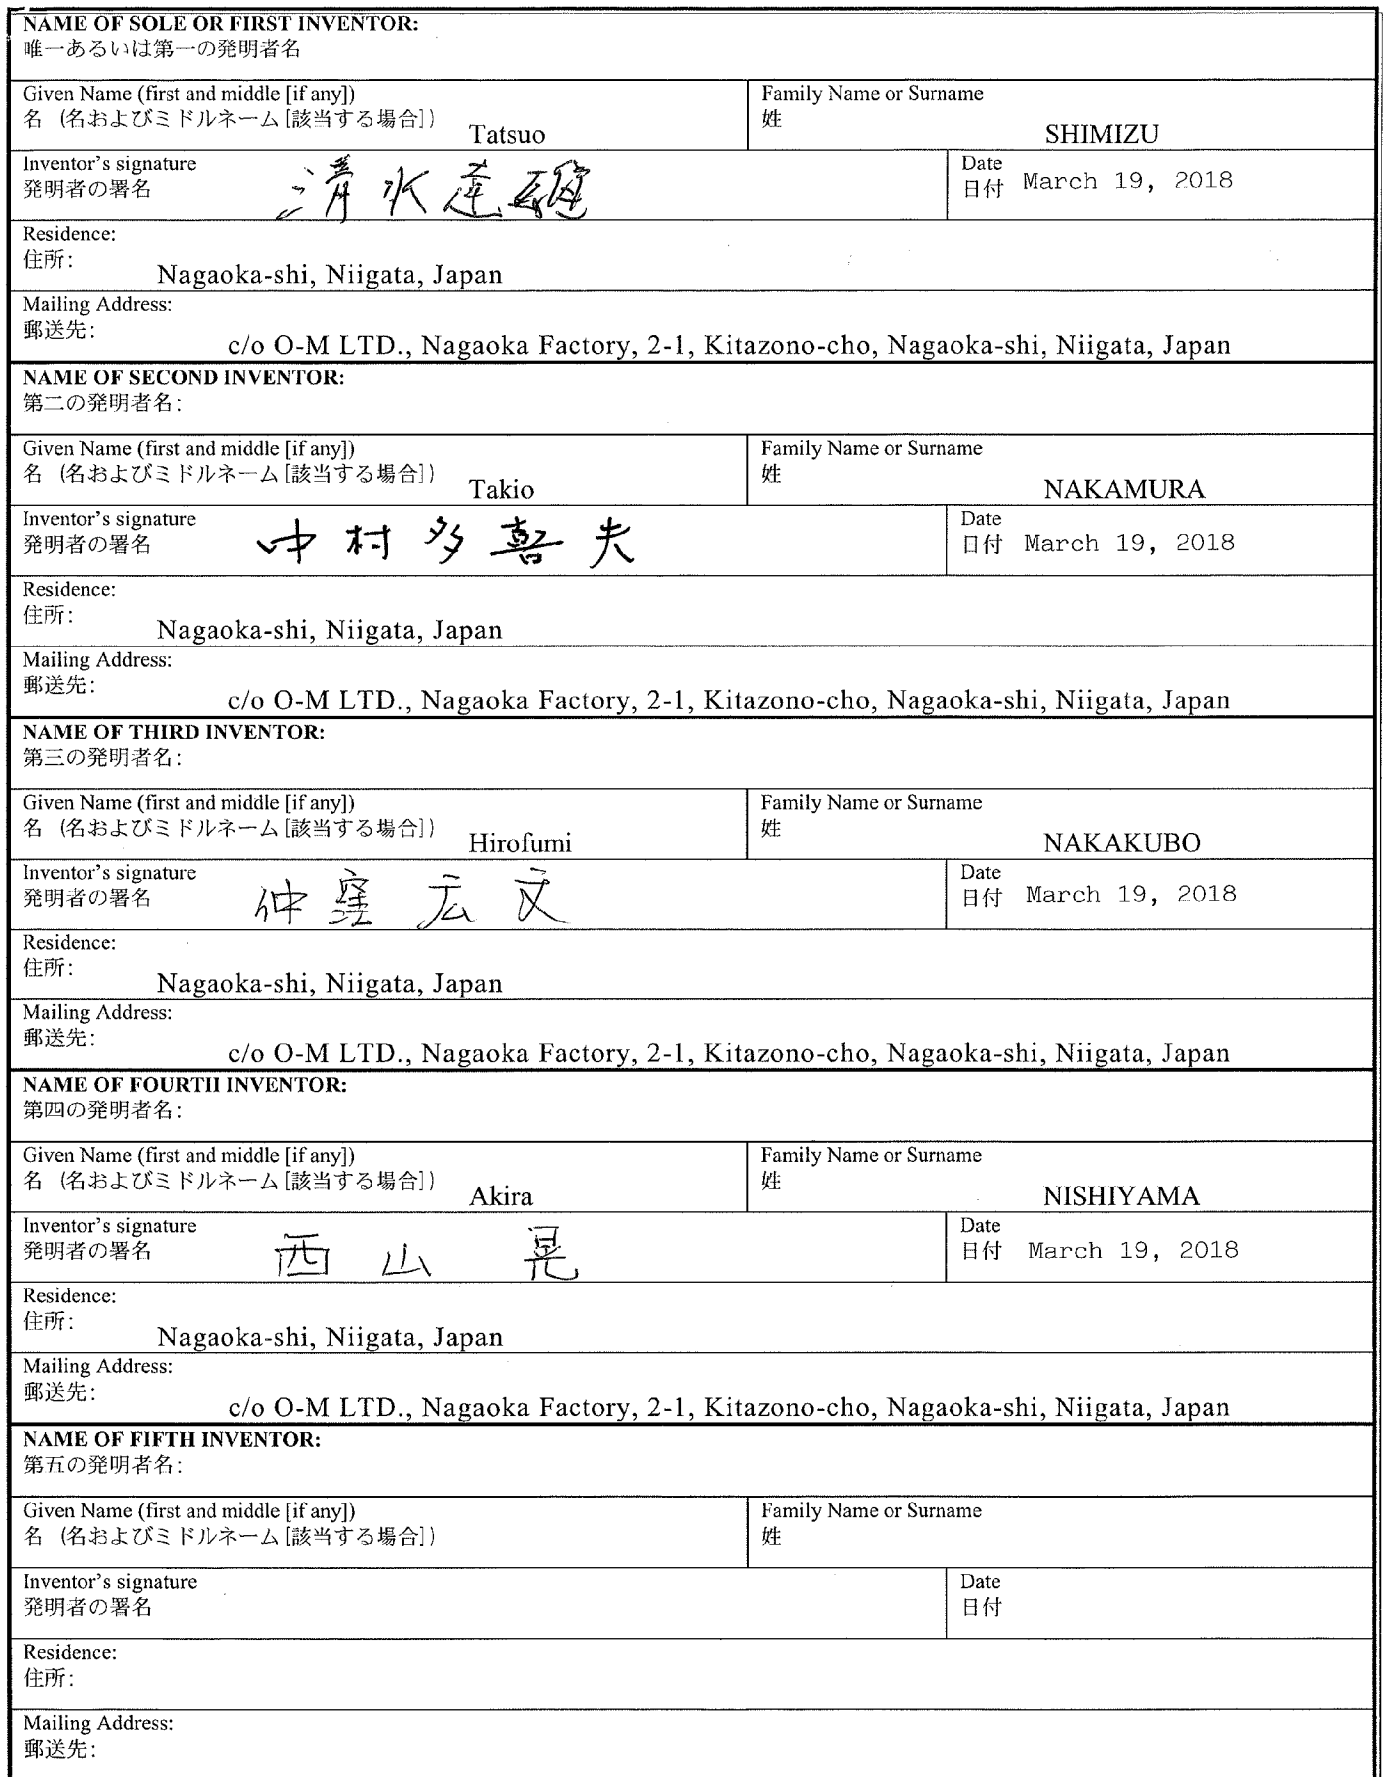 NAME OF SOLE OR FIRST INVENTOR:
唯一あるいは第一の発明者名
Given Name (first and middle [if any])
名 (名およびミドルネーム[該当する場合]) Tatsuo
Family Name or Surname
姓 SHIMIZU
Inventor's signature
発明者の署名 清水達雄
Date
日付 March 19, 2018
Residence:
住所:
Nagaoka-shi, Niigata, Japan
Mailing Address:
郵送先:
c/o O-M LTD., Nagaoka Factory, 2-1, Kitazono-cho, Nagaoka-shi, Niigata, Japan
NAME OF SECOND INVENTOR:
第二の発明者名:
Given Name (first and middle [if any])
名 (名およびミドルネーム[該当する場合]) Takio
Family Name or Surname
姓 NAKAMURA
Inventor's signature
発明者の署名 中村多喜夫
Date
日付 March 19, 2018
Residence:
住所:
Nagaoka-shi, Niigata, Japan
Mailing Address:
郵送先:
c/o O-M LTD., Nagaoka Factory, 2-1, Kitazono-cho, Nagaoka-shi, Niigata, Japan
NAME OF THIRD INVENTOR:
第三の発明者名:
Given Name (first and middle [if any])
名 (名およびミドルネーム[該当する場合]) Hirofumi
Family Name or Surname
姓 NAKAKUBO
Inventor's signature
発明者の署名 仲窪 広文
Date
日付 March 19, 2018
Residence:
住所:
Nagaoka-shi, Niigata, Japan
Mailing Address:
郵送先:
c/o O-M LTD., Nagaoka Factory, 2-1, Kitazono-cho, Nagaoka-shi, Niigata, Japan
NAME OF FOURTH INVENTOR:
第四の発明者名:
Given Name (first and middle [if any])
名 (名およびミドルネーム[該当する場合]) Akira
Family Name or Surname
姓 NISHIYAMA
Inventor's signature
発明者の署名 西山 晃
Date
日付 March 19, 2018
Residence:
住所:
Nagaoka-shi, Niigata, Japan
Mailing Address:
郵送先:
c/o O-M LTD., Nagaoka Factory, 2-1, Kitazono-cho, Nagaoka-shi, Niigata, Japan
NAME OF FIFTH INVENTOR:
第五の発明者名:
Given Name (first and middle [if any])
名 (名およびミドルネーム[該当する場合])
Family Name or Surname
姓
Inventor's signature
発明者の署名
Date
日付
Residence:
住所:
Mailing Address:
郵送先: